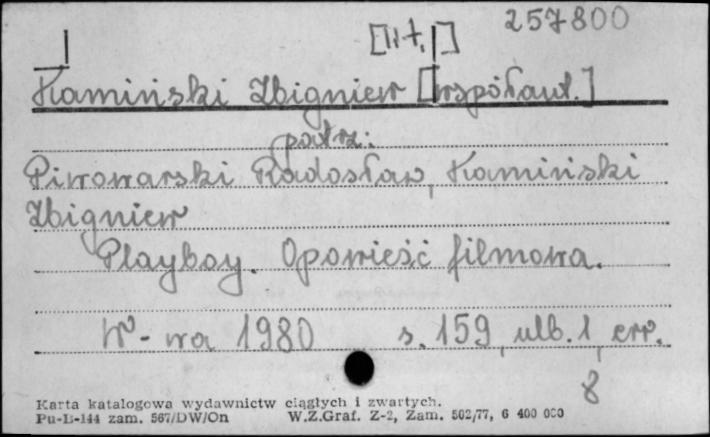 257800
[lit.]
Kamiński Zbigniew [współaut.]
patrz:
Piwowarski Radosław, Kamiński
Zbigniew
Playboy. Opowieść filmowa.
W-wa 1980 s. 159, nlb. 1, err.
8
Karta katalogowa wydawnictw ciągłych i zwartych.
Pu-B-144 zam. 567/DW/On W.Z.Graf. Z-2, Zam. 502/77, 6 400 000